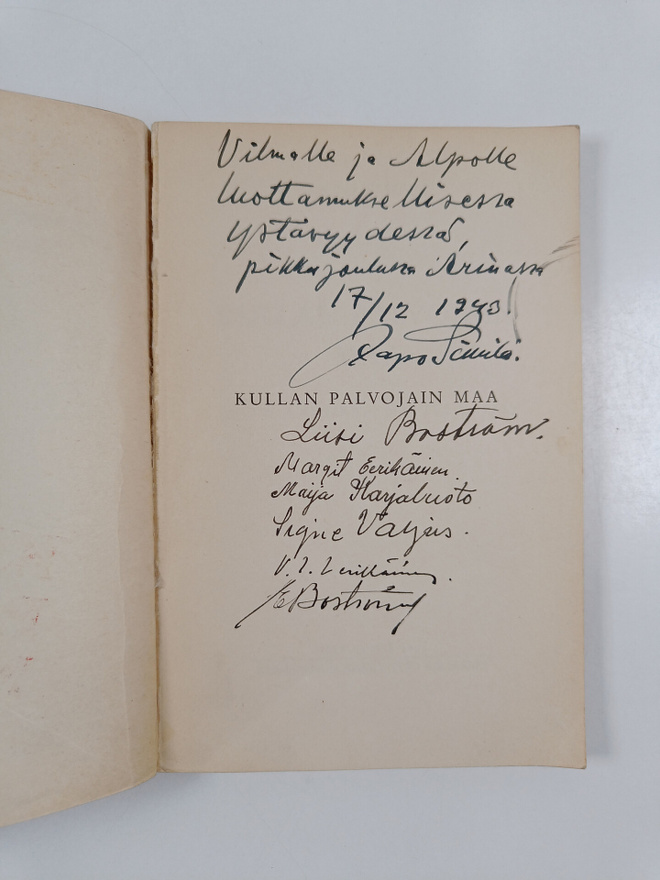 Vilmalle ja Alpolle
luottamuksellisessa
ystävyydessä,
pikkujoulussa Arinassa
17/12 1943.
KULLAN PALVOJAIN MAA
Liisi Boström.
Margit Eerikäinen
Maija Karjaluoto
Signe
V. Eerikäinen.
E Boström